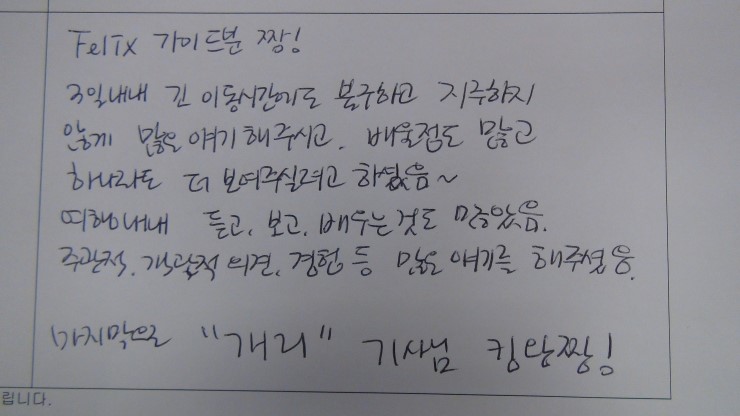 Felix 가이드분 짱!
3일내내 긴 이동시간에도 불구하고 지루하지
않게 많은 얘기 해주시고. 배울점도 많고
하나라도 더 보여주실려고 하셨음~
여행내내 듣고, 보고, 배우는것도 많았음.
주관적, 객관적 의견, 경험 등 많은 얘기를 해주셨음.
마지막으로 "개리" 기사님 킹왕짱!
립니다.